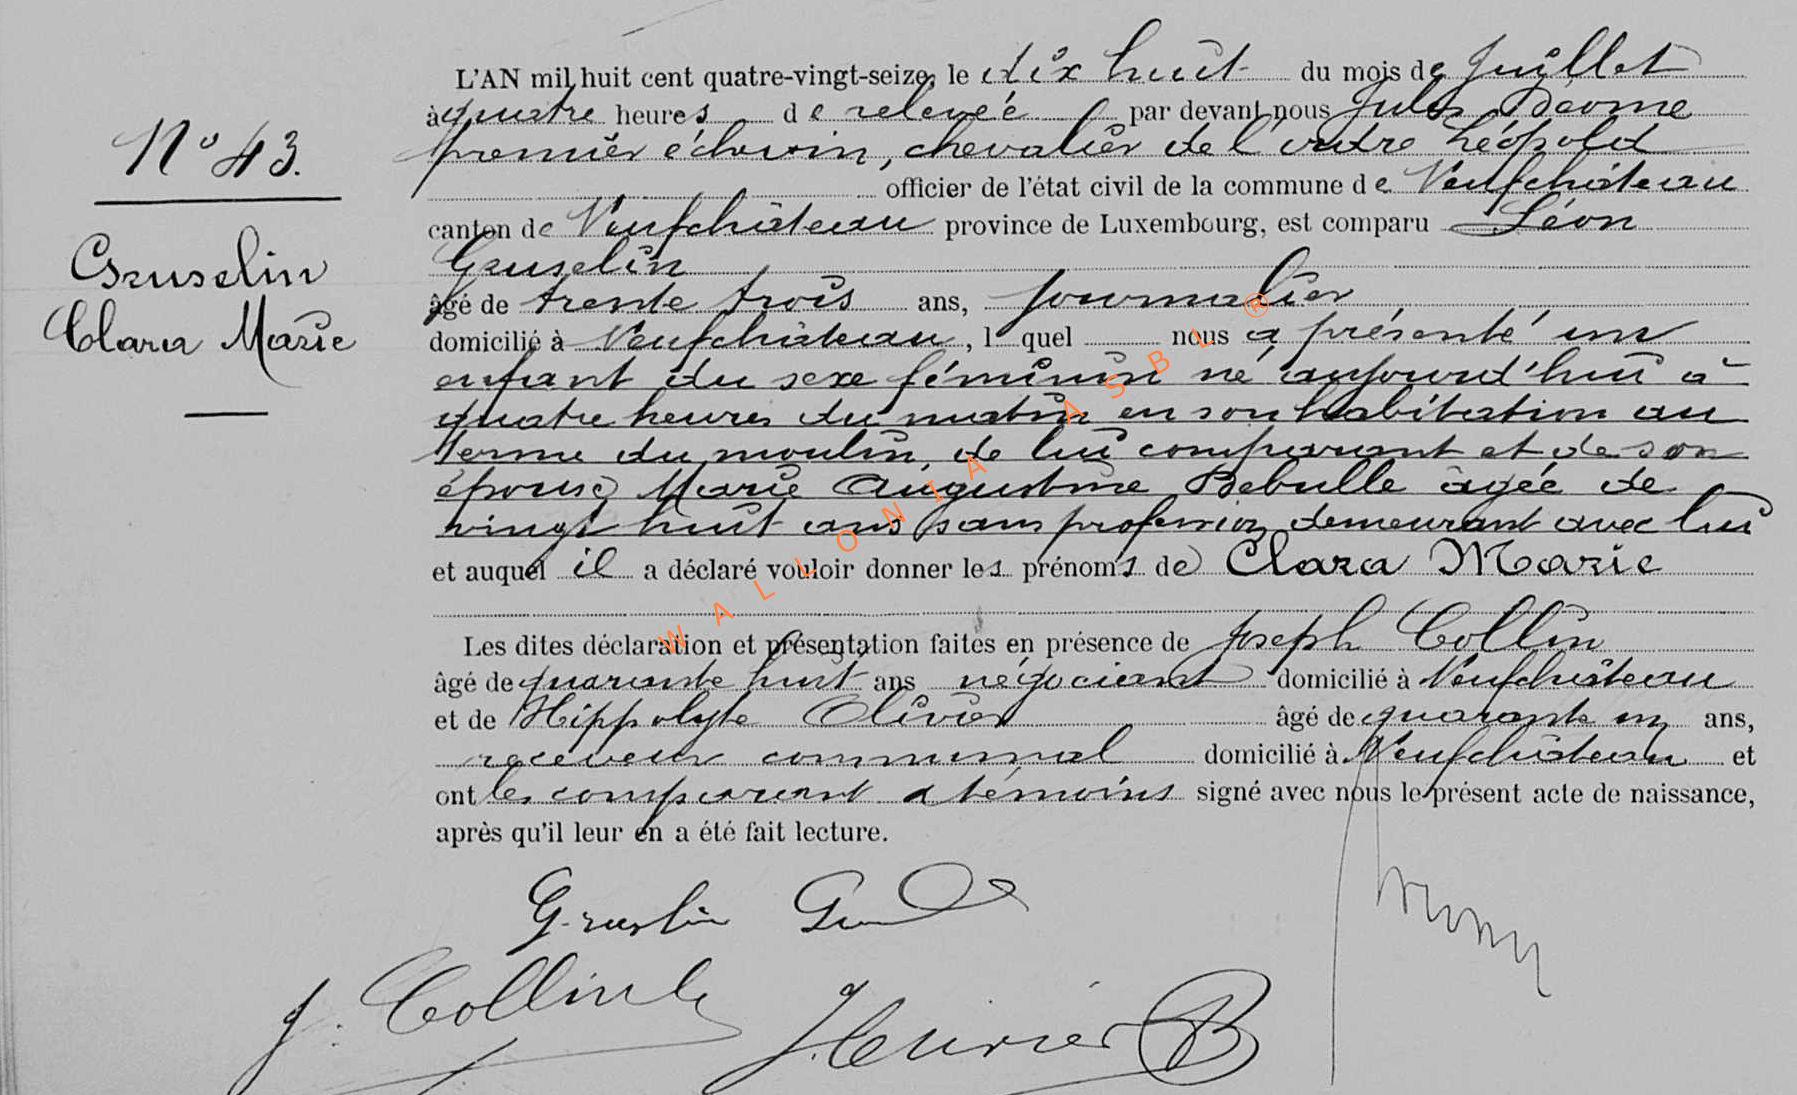 L'AN mil huit cent quatre-vingt-seize, le dix huit du mois de Juillet
à quatre heures de relevée par devant nous Jules Déome
N° 43.
premier échevin, chevalier de l'ordre Léopold
officier de l'état civil de la commune de Neufchâteau
canton de Neufchâteau province de Luxembourg, est comparu Léon
Gruselin
Clara Marie
Gruselin
âgé de trente trois ans, journalier
domicilié à Neufchâteau, l quel nous a présenté un
enfant du sexe féminin né aujourd'hui à
quatre heures du matin en son habitation au
Terme du moulin, de lui comparant et de son
épouse Marie Augustine Bebulle âgée de
vingt huit ans sans profession demeurant avec lui
et auquel il a déclaré vouloir donner les prénoms de Clara Marie
Les dites déclaration et présentation faites en présence de Joseph Collin
âgé de quarante huit ans négociant domicilié à Neufchâteau
et de Hippolyte Olivier âgé de quarante un ans,
receveur communal domicilié à Neufchâteau et
ont les comparant et témoins signé avec nous le présent acte de naissance,
après qu'il leur en a été fait lecture.
WALLONIA ASBL ®
Gruslin
J. Collin